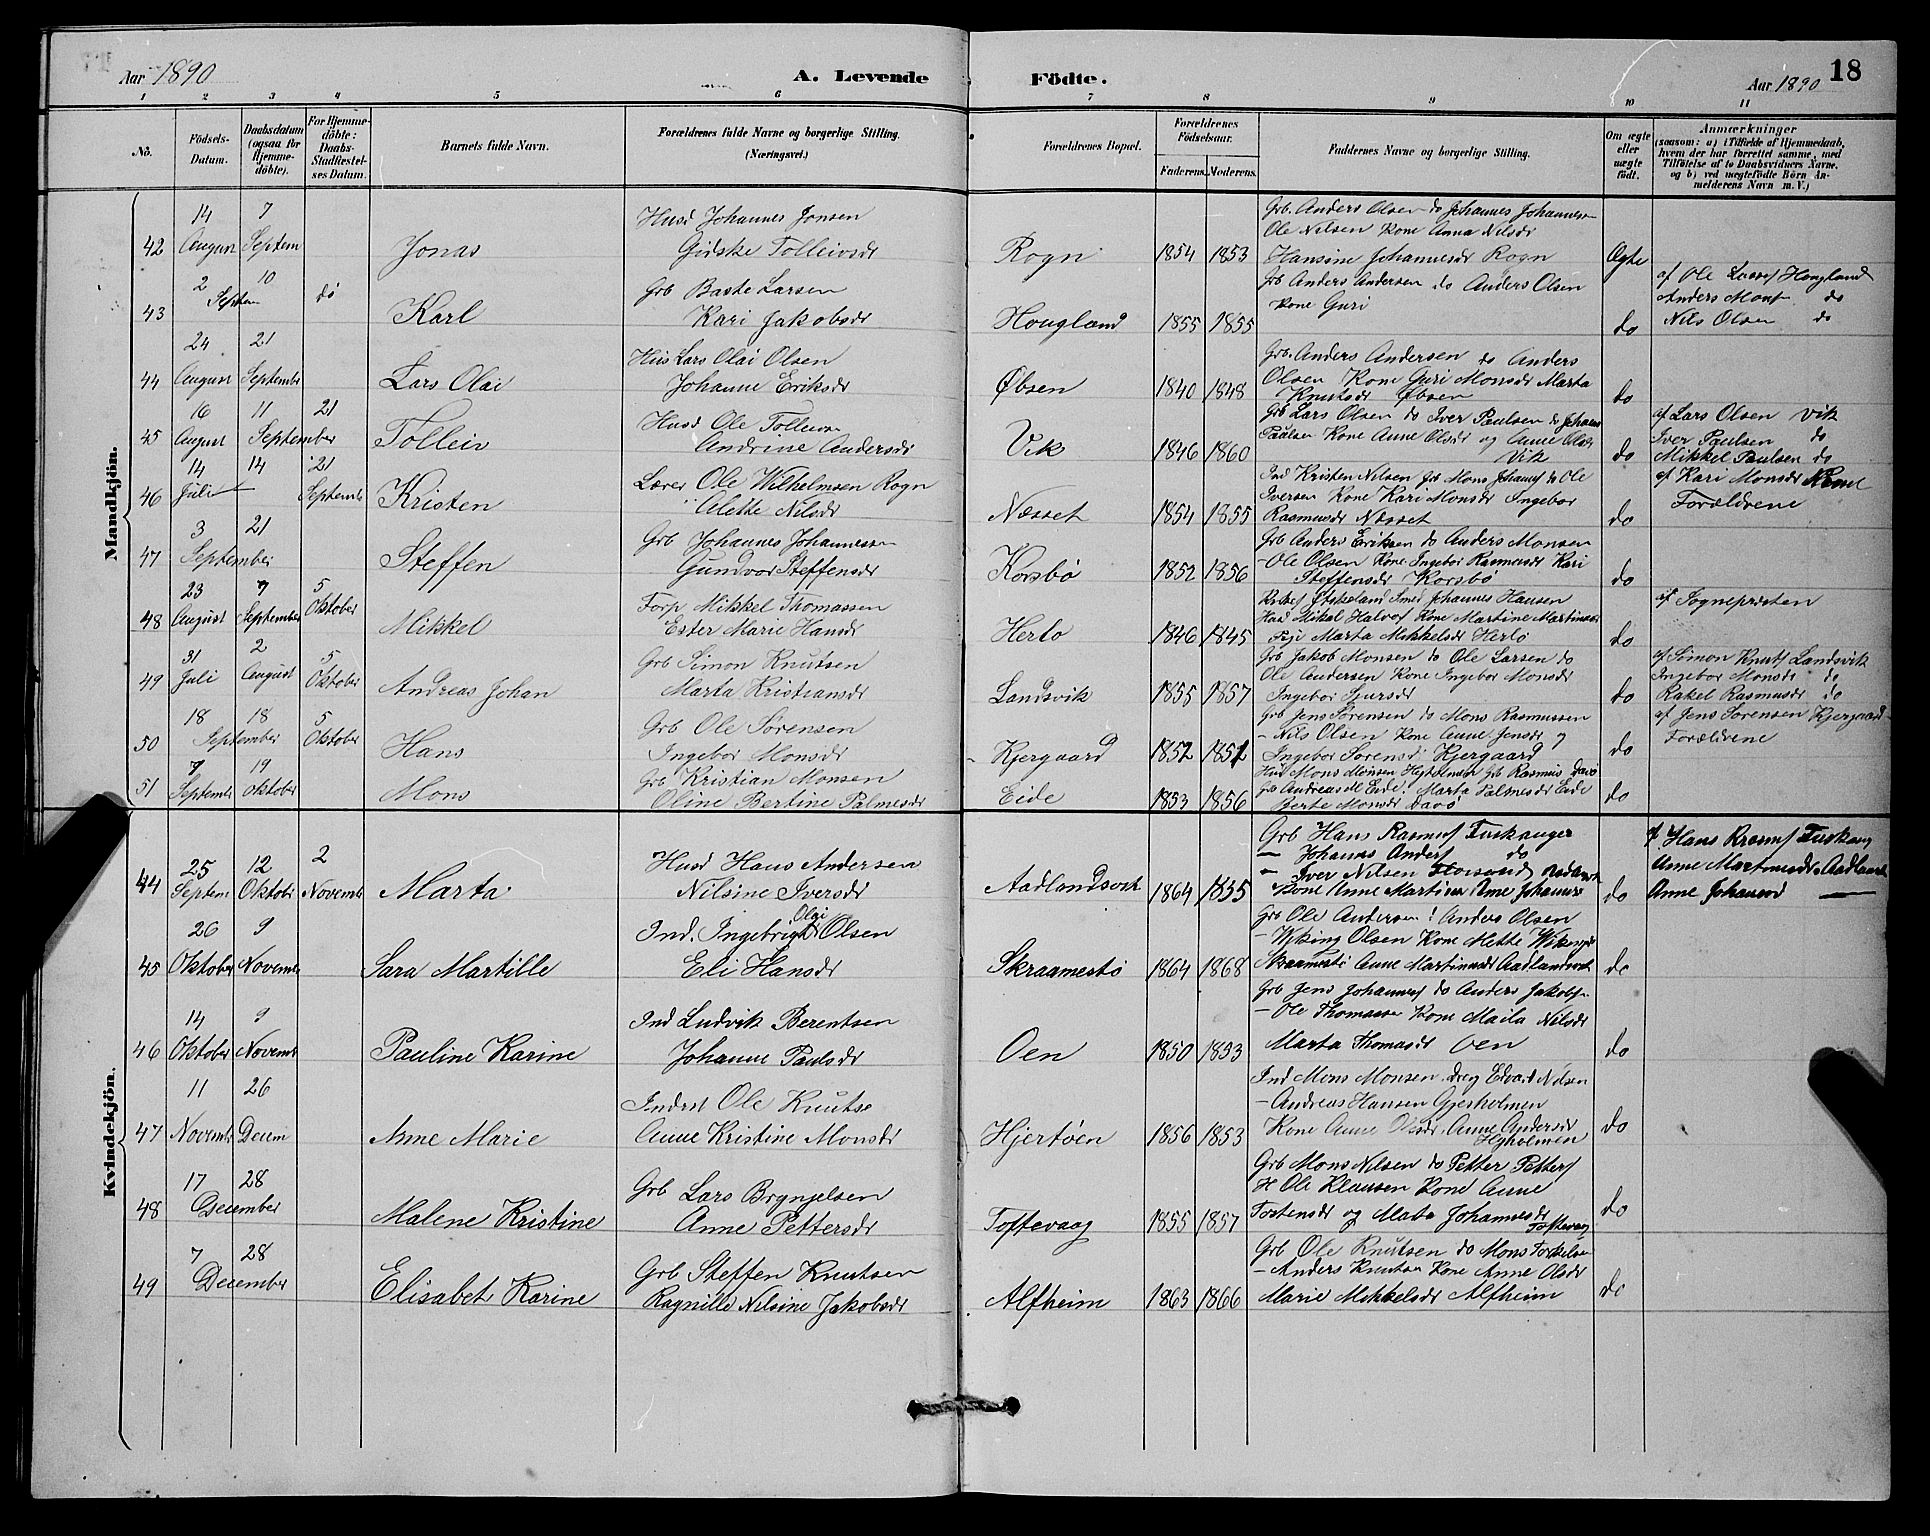 Aar 1890
A. Levende Födte.
Aar 1890
18
1 2 3 4 5 6 7 8 9 10 11
No.
Födsels-Datum.
Daabsdatum (ogsaa for Hjemmedöbte).
For Hjemmedöbte: Daabs-Stadfæstelses Datum.
Barnets fulde Navn.
Forældrenes fulde Navne og borgerlige Stilling. (Næringsvei.)
Forældrenes Bopæl.
Forældrenes Födselsaar.
Faderens. Moderens.
Faddernes Navne og borgerlige Stilling.
Om ægte eller uægte födt.
Anmærkninger (saasom: a) i Tilfælde af Hjemmedaab, hvem der har forrettet samme, med Tilföielse af to Daabsvidners Navne, og b) ved uægtefödte Börn Anmelderens Navn m. V.)
Mandkjön.
42 14 August 7 Septem Jonas
Husd Johannes Jonsen
Gidske Tolleivsdr
Rogn 1854 1853
Grb. Anders Olsen do Johannes Johannesen
Ole Nilsen Kone Anna Nilsdr
Hansine Johannesdr Rogn
Ægte
43 2 Septem 10 do Karl
Grb Baste Larsen
Kari Jakobsdr
Hougland 1855 1855
Grb Anders Andersen do Anders Olsen
Kone Guri
do
af Ole Lasse Hougland
Anders Mons do
Nils Olsen do
44 24 August 21 September Lars Olai
Hus Lars Olai Olsen
Johanne Eriksdr
Øbsen 1840 1848
Grb. Anders Andersen do Anders
Olsen Kone Guri Monsdr Marta
Knutsdr Øbsen
do
45 16 August 11 September 21 Tolleiv
Husd Ole Tolleivs
Andrine Andersdr
Vik 1846 1860
Grb Lars Olsen do Iver Paulsen do Johans
Paulsen Kone Anne Olsdr og Anne Olsdr
Vik
do
af Lars Olsen Vik
Iver Paulsen do
Mikkel Paulsen do
46 14 Juli 14 21 September Kristen
Lærer Ole Wilhelmsen Rogn
Alette Nilsdr
Næsset 1854 1855
Ind Kristen Nilsen Grb Mons Johannes do Ole
Iversen Kone Kari Monsdr Ingebor
Rasmusdr Næsset
do
af Kari Monsdr
Forældrene
47 3 September 21 Steffen
Grb Johannes Johannessen
Gundvor Steffensdr
Korsbø 1852 1856
Grb Anders Eriksen do Anders Monsen
- Ole Olsen Kone Ingebor Rasmusdr Kari
Steffensdr Korsbø
do
48 23 August 7 September 5 Oktober Mikkel
Forp Mikkel Thomassen
Ester Marie Hansdr
Herlø 1846 1845
Smed Johannes Hansen
Husd Mikel Halvors Kone Martine Martinsdr
Pige Marta Mikkelsdr Herlø
do
af Sognepresten
49 31 Juli 2 August 5 Oktober Andreas Johan
Grb Simon Knutsen
Marta Kristiansdr
Landsvik 1855 1857
Grb Jakob Monsen do Ole Larsen do
Ole Andersen Kone Ingebor Monsdr
Ingebor Sjursdr
do
af Simon Knuts Landsvik
Ingebor Monsdr do
Rakel Rasmusdr do
50 18 September 18 5 Oktober Hans
Grb Ole Sørensen
Ingebor Monsdr
Kjergaard 1852 1852
Grb Jens Sørensen do Mons Rasmussen
- Nils Olsen Kone Anne Jensdr og
Ingebor Sorensdr Kjergaard
do
af Jens Sorensen Kjergaard
Forældrene
51 7 September 19 Oktober Mons
Grb Kristian Monsen
Oline Bertine Palmesdr
Eide 1853 1856
Husd Mons Monsen Grb Rasmus Davø
Grb Andreas M Eide Marta Palmesdr Eide
Berte Monsdr Davø
do
Kvindekjön.
44 25 Septem 12 Oktober 2 Novemb Marta
Husd Hans Andersen
Nilsine Iversdr
Aadlandsvik 1864 1855
Grb Hans Rasmus Tuskanger
- Johannes Anders do
- Iver Nilsen
Kone Anne Martins Anne Johannes
do
af Hans Rasms Tuskang
Anne Martinusdr Aadlands
Anne Johansd
45 26 Oktober 9 Novemb Sara Martille
Ind. Ingebrigt Olai Olsen
Eli Hansdr
Skraamestø 1864 1868
Grb Ole Andersen : Anders Olsen
- Wiking Olsen Kone Mette Wikingsdr
Skraamestø Anne Martinusdr Aadlandsvik
do
46 14 Oktober 9 Novemb Pauline Karine
Ind Ludvik Berentsen
Johanne Paulsdr
Oen 1850 1853
Grb Jens Johannes do Anders Jakobs
- Ole Thomassen Kone Maila Nilsdr
Marta Thomasdr Oen
do
47 11 Novemb 26 Decem Anne Marie
Inderst Ole Knutse
Anne Kristine Monsdr
Hjertøen 1856 1853
Ind Mons Monsen Dreg Edvard Nilsen
- Andreas Hansen Gjesholmen
Kone Anne Olsdr. Anne Andersdr
do
48 17 December 28 Malene Kristine
Grb Lars Brynjelsen
Anne Pettersdr
Toftevaag 1855 1857
Grb Mons Nilsen do Petter Petters
H Ole Klausen Kone Anne
Torstensdr og Marta Johannesdr
Toftevaag
do
49 7 December 28 Elisabet Karine
Grb Steffen Knutsen
Ragnille Nilsine Jakobsdr
Alfheim 1863 1866
Grb Ole Knutsen do Mons Torkelsen
- Anders Knutsen Kone Anne Olsdr
Marie Mikkelsdr Alfheim
do